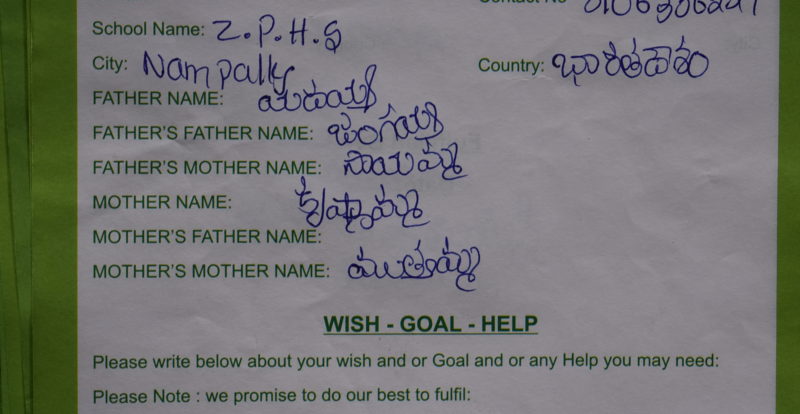 School Name: Z.P.H.S
City: Nampally Country: భారతదాశం
FATHER NAME: యదయ్య
FATHER'S FATHER NAME: జంగయ్య
FATHER'S MOTHER NAME: సాయమ్మ
MOTHER NAME: కృష్ణమ్మ
MOTHER'S FATHER NAME:
MOTHER'S MOTHER NAME: ముత్తమ్మ
WISH - GOAL - HELP
Please write below about your wish and or Goal and or any Help you may need:
Please Note : we promise to do our best to fulfil: